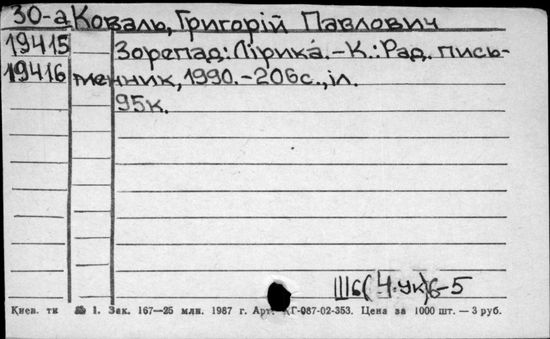 30-а Коваль, Григорій Павлович
19415 Зорепад: Лірика. – К.: Рад. пись-
19416 менник, 1990. – 206с., іл.
95к.
Ш6(4.Ук)6-5
Киев. ти № 1. Зак. 167—25 млн. 1987 г. Арт. КГ-087-02-353. Цена за 1000 шт. — 3 руб.